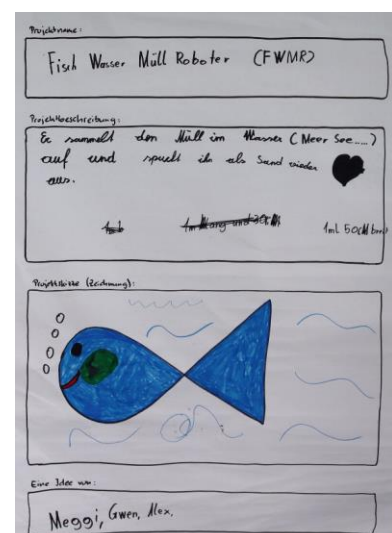 Projektname:
Fisch Wasser Müll Roboter (FWMR)
Projektbeschreibung:
Er sammelt den Müll im Wasser (Meer See.....)
auf und spuckt ihn als Sand wieder
aus.
Projektskizze (Zeichnung):
Eine Idee von:
Meggi, Gwen, Alex.